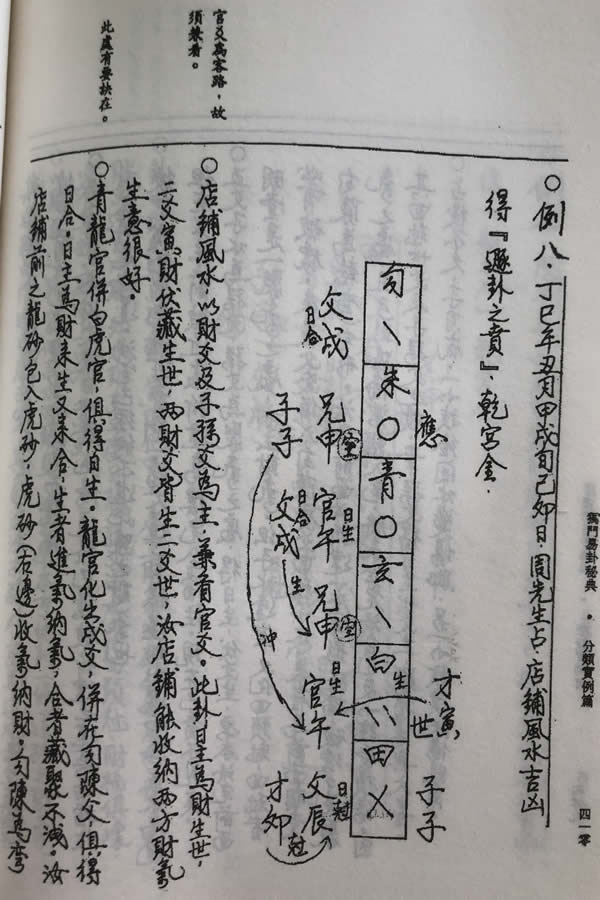 獨門易卦秘典 • 分類實例篇 四一零
○例八.丁巳年丑月甲戌旬己卯日.周先生占.店鋪風水吉凶
得『遯卦之賁』.乾宮金.
才寅 子子
應 世
勾 丶 朱 ○ 青 ○ 玄 丶 白 丶丶 田 乂
生
日生 日生 日尅
父戌 兄申 空 官午 兄申 空 官午 父辰
日合 日合
子子 父戌 才卯
生 尅
冲
官爻為客路，故
須兼看。
○店鋪風水，以財爻及子孫爻為主，兼看官爻。此卦日主為財生世，
二爻寅財伏藏生世，兩財爻皆生二爻世，汝店鋪能收納兩方財氣
生意很好。
此處有要訣在。
○青龍官併白虎官，俱得日生。龍官化出戌父，併在勾陳父俱得
日合。日主為財來生又來合，生者進氣納氣，合者藏聚不洩。汝
店鋪前之龍砂包入虎砂，虎砂（右邊）收氣納財。勾陳為彎